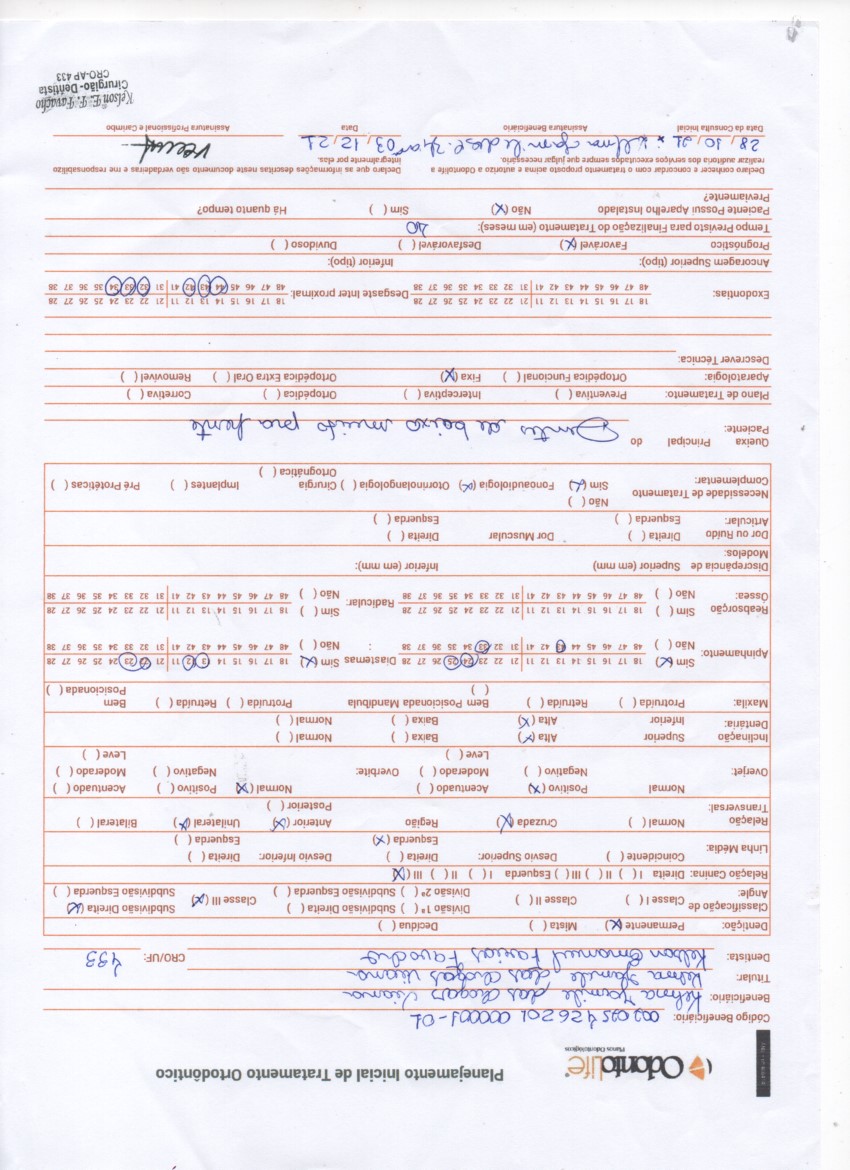 OdontoLife
Planos Odontológicos
Planejamento Inicial de Tratamento Ortodôntico
Código Beneficiário: 002 025 426201 000001-01
Beneficiário: Kelma Jamile das Chagas Viana
Titular: Kelma Jamile das Chagas Viana
Dentista: Kelson Emanuel Farias Favacho CRO/UF: 433
Dentição: Permanente (X) Mista ( ) Decídua ( )
Classificação de Angle: Classe I ( ) Classe II ( ) Divisão 1ª ( ) Subdivisão Direita ( ) Classe III (X) Subdivisão Direita (X)
Divisão 2ª ( ) Subdivisão Esquerda ( ) Subdivisão Esquerda ( )
Relação Canina: Direita I ( ) II ( ) III ( ) Esquerda I ( ) II ( ) III (X)
Linha Média: Coincidente ( ) Desvio Superior: Direita ( ) Desvio Inferior: Direita ( )
Esquerda (X) Esquerda ( )
Relação Transversal: Normal ( ) Cruzada (X) Região Anterior (X) Unilateral (X) Bilateral ( )
Posterior ( )
Overjet: Normal Positivo (X) Acentuado ( ) Normal (X) Positivo ( ) Acentuado ( )
Negativo ( ) Moderado ( ) Overbite: Negativo ( ) Moderado ( )
Leve ( ) Leve ( )
Inclinação Dentária: Superior Alta (X) Baixa ( ) Normal ( )
Inferior Alta (X) Baixa ( ) Normal ( )
Maxila: Protruída ( ) Retruída ( ) Bem Posicionada ( ) Mandíbula Protruída ( ) Retruída ( ) Bem Posicionada ( )
Apinhamento: Sim (X) 18 17 16 15 14 13 12 11 21 22 23 24 25 26 27 28 Diastemas Sim (X) 18 17 16 15 14 13 12 11 21 22 23 24 25 26 27 28
Não ( ) 48 47 46 45 44 43 42 41 31 32 33 34 35 36 37 38 : Não ( ) 48 47 46 45 44 43 42 41 31 32 33 34 35 36 37 38
Reabsorção Óssea: Sim ( ) 18 17 16 15 14 13 12 11 21 22 23 24 25 26 27 28 Radicular: Sim ( ) 18 17 16 15 14 13 12 11 21 22 23 24 25 26 27 28
Não ( ) 48 47 46 45 44 43 42 41 31 32 33 34 35 36 37 38 Não ( ) 48 47 46 45 44 43 42 41 31 32 33 34 35 36 37 38
Discrepância de Modelos: Superior (em mm) Inferior (em mm):
Dor ou Ruído Articular: Direita ( ) Dor Muscular Direita ( )
Esquerda ( ) Esquerda ( )
Necessidade de Tratamento Complementar: Não ( )
Sim (X) Fonoaudiologia (X) Otorrinolangologia ( ) Cirurgia Ortognática ( ) Implantes ( ) Pré Protéticas ( )
Queixa Principal do Paciente: Dentes de baixo muito pra frente
Plano de Tratamento: Preventiva ( ) Interceptiva ( ) Ortopédica ( ) Corretiva ( )
Aparatologia: Ortopédica Funcional ( ) Fixa (X) Ortopédica Extra Oral ( ) Removível ( )
Descrever Técnica:
Exodontias: 18 17 16 15 14 13 12 11 21 22 23 24 25 26 27 28 Desgaste Inter proximal: 18 17 16 15 14 13 12 11 21 22 23 24 25 26 27 28
48 47 46 45 44 43 42 41 31 32 33 34 35 36 37 38 48 47 46 45 44 43 42 41 31 32 33 34 35 36 37 38
Ancoragem Superior (tipo): Inferior (tipo):
Prognóstico Favorável (X) Desfavorável ( ) Duvidoso ( )
Tempo Previsto para Finalização do Tratamento (em meses): 40
Paciente Possui Aparelho Instalado Previamente? Não (X) Sim ( ) Há quanto tempo?
Declaro conhecer e concordar com o tratamento proposto acima e autorizo a Odontolife a realizar auditoria dos serviços executados sempre que julgar necessário.
Declaro que as informações descritas neste documento são verdadeiras e me responsabilizo integralmente por elas.
28, 10, 21 03, 12, 21
Data da Consulta Inicial Assinatura Beneficiário Data Assinatura Profissional e Carimbo
Kelson E. F. Favacho
Cirurgião-Dentista
CRO-AP 433